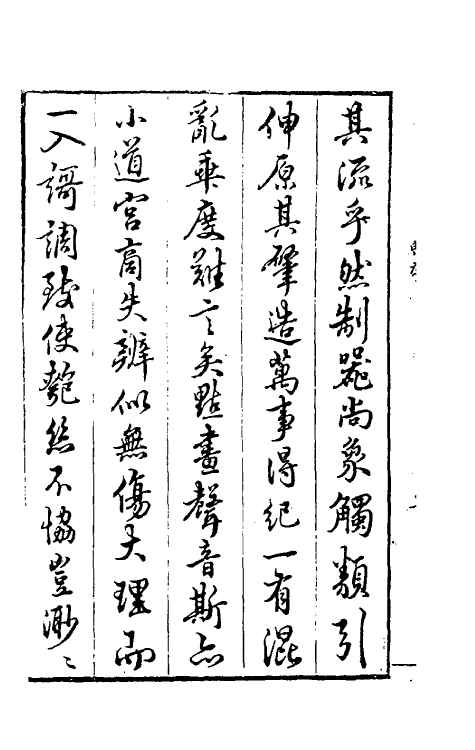 其流乎然制器尚象觸類引
伸原其肇造萬事得紀一有混
亂乖度難言矣點畫聲音斯亦
小道宮商失辨似無傷大理而
一入謌調致使匏絲不協豈渺〻